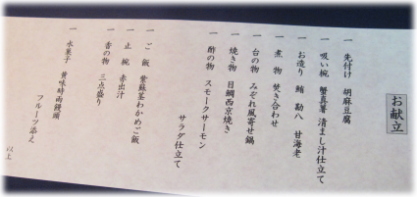 お献立
一 先付け 胡麻豆腐
一 吸い椀 蟹真薯 清まし汁仕立て
一 お造り 鮪 勘八 甘海老
一 煮物 焚き合わせ
一 台の物 みぞれ風寄せ鍋
一 焼き物 目鯛西京焼き
一 酢の物 スモークサーモン
サラダ仕立て
一 ご飯 紫蘇茎わかめご飯
一 止椀 赤出汁
一 香の物 三点盛り
一 水菓子 黄味時雨饅頭
フルーツ添え
以上